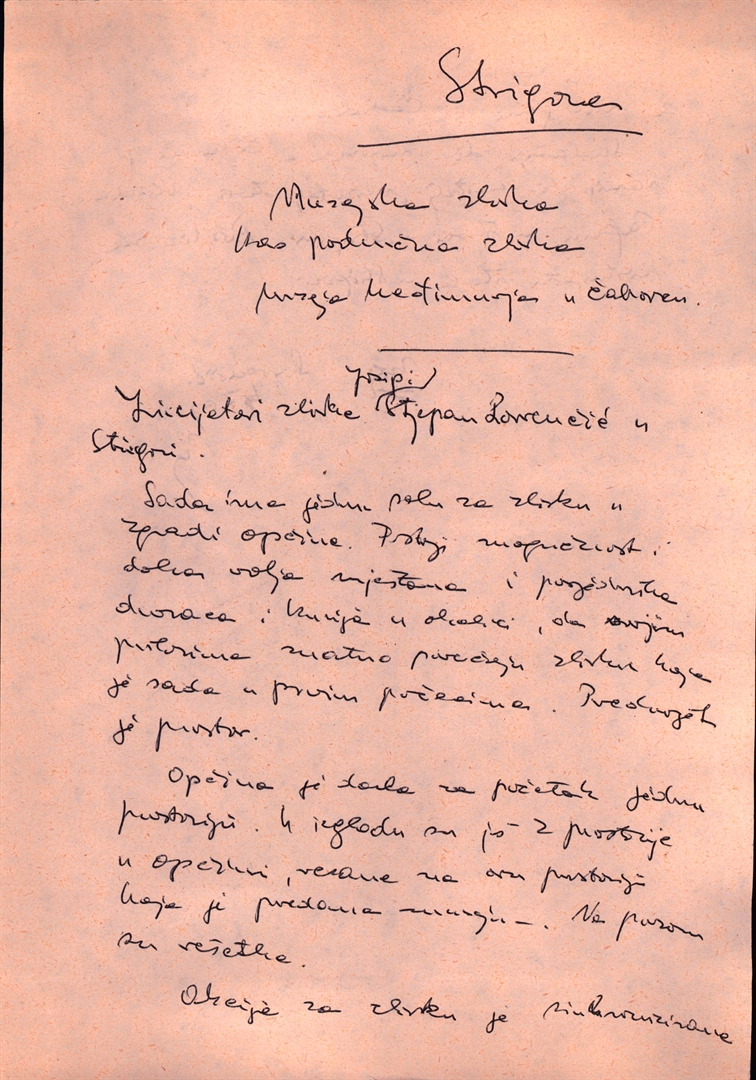 Štrigova
Muzejska zbirka
kao područna zbirka
Muzeja Međimurja u Čakovcu.
Josip i
Inicijatori zbirke Stjepan Lovrenčić u
Štrigovi.
Sada ima jednu sobu za zbirku u
zgradi općine. Postoji mogućnost i
dobra volja mještana i posjednika
dvoraca i kurija u okolici, da svojim
prilozima znatno povećaju zbirku koja
je sada u prvim počecima. Preduvjet
je prostor.
Općina je dala za početak jednu
prostoriju. U izgledu su još 2 prostorije
u općini, vezane na ovu prostoriju
koja je predana muzeju. Na
su rešetke.
Akcija za zbirku je sinhronizirana